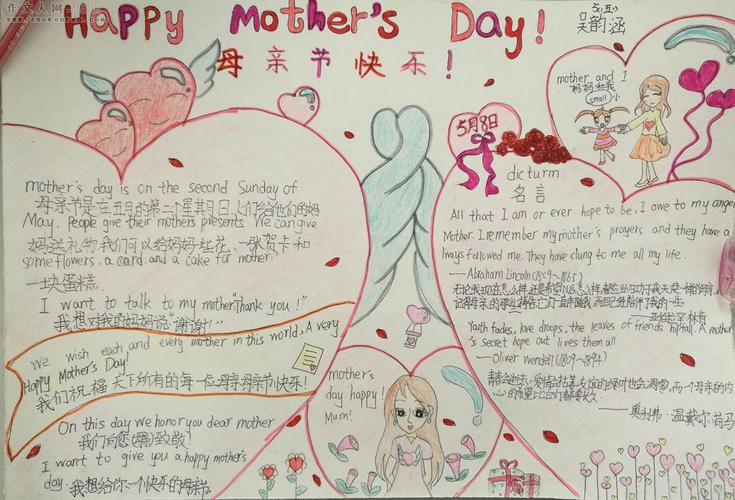 Happy Mother's Day!
母亲节快乐!
吴韵涵
mother and I
妈妈和我
small 小
5月8日
mother's day is on the second Sunday of
母亲节是在五月的第二个星其日日,人们给他们的妈
May. People give their mothers presents. We can give
妈送礼物,我们可以给妈妈红花、一张贺卡和
some flowers, a card and a cake for mother.
一块蛋糕.
I want to talk to my mother"Thank you!"
我想对我的妈妈说"谢谢!"
We wish each and every mother in this world, A very
Happy Mother's Day!
我们祝福天下所有的每一位母亲母亲节快乐!
On this day we honor you dear mother
我们向您致敬!
I want to give you a happy mother's
day.
我想给你一个快乐的母亲节
mother's
day happy!
Mum!
dicturm
名言
All that I am or ever hope to be, I owe to my angel
Mother. I remember my mother's prayers and they have a
lways followed me. They have clung to me all my life.
——Abraham Lincoln(1809~1865)
Youth fades, love droops, the leaves of friends hipfall. A mother
's secret hope out lives them all
——Oliver wendell(1809~1894)
——奥利弗·温戴尔·荷马